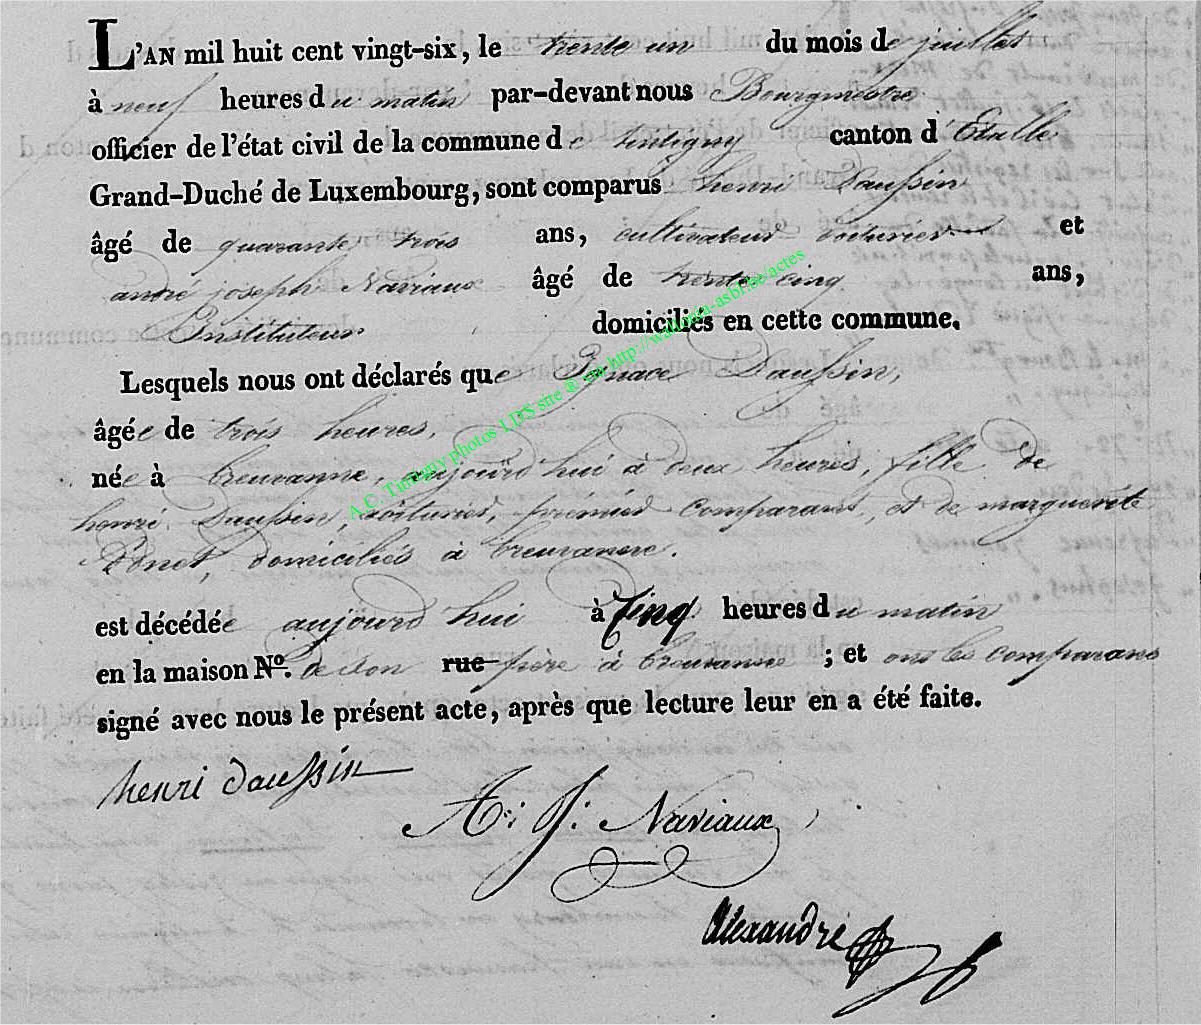 L'AN mil huit cent vingt-six, le trente un du mois de juillet
à neuf heures du matin par-devant nous Bourgmestre
officier de l'état civil de la commune de tintigny canton d'Etalle
Grand-Duché de Luxembourg, sont comparus henri Daussin
âgé de quarante trois ans, cultivateur voiturier et
andré joseph Naviaux âgé de trente cinq ans,
Instituteur domiciliés en cette commune.
Lesquels nous ont déclarés que Ignace Daussin,
âgée de trois heures,
née à breuvanne, aujourd'hui à deux heures, fille de
henri Daussin, voiturier, premier comparant, et de marguerite
Ponet, domiciliés à breuvanne.
est décédée aujourd hui à Cinq heures du matin
en la maison No. de son rue père à breuvanne ; et ont les comparans
signé avec nous le présent acte, après que lecture leur en a été faite.
henri daussin
A: J: Naviaux
Alexandre
A.C. Tintigny photos LDS site @ via http://wallonia-asbl.be/actes